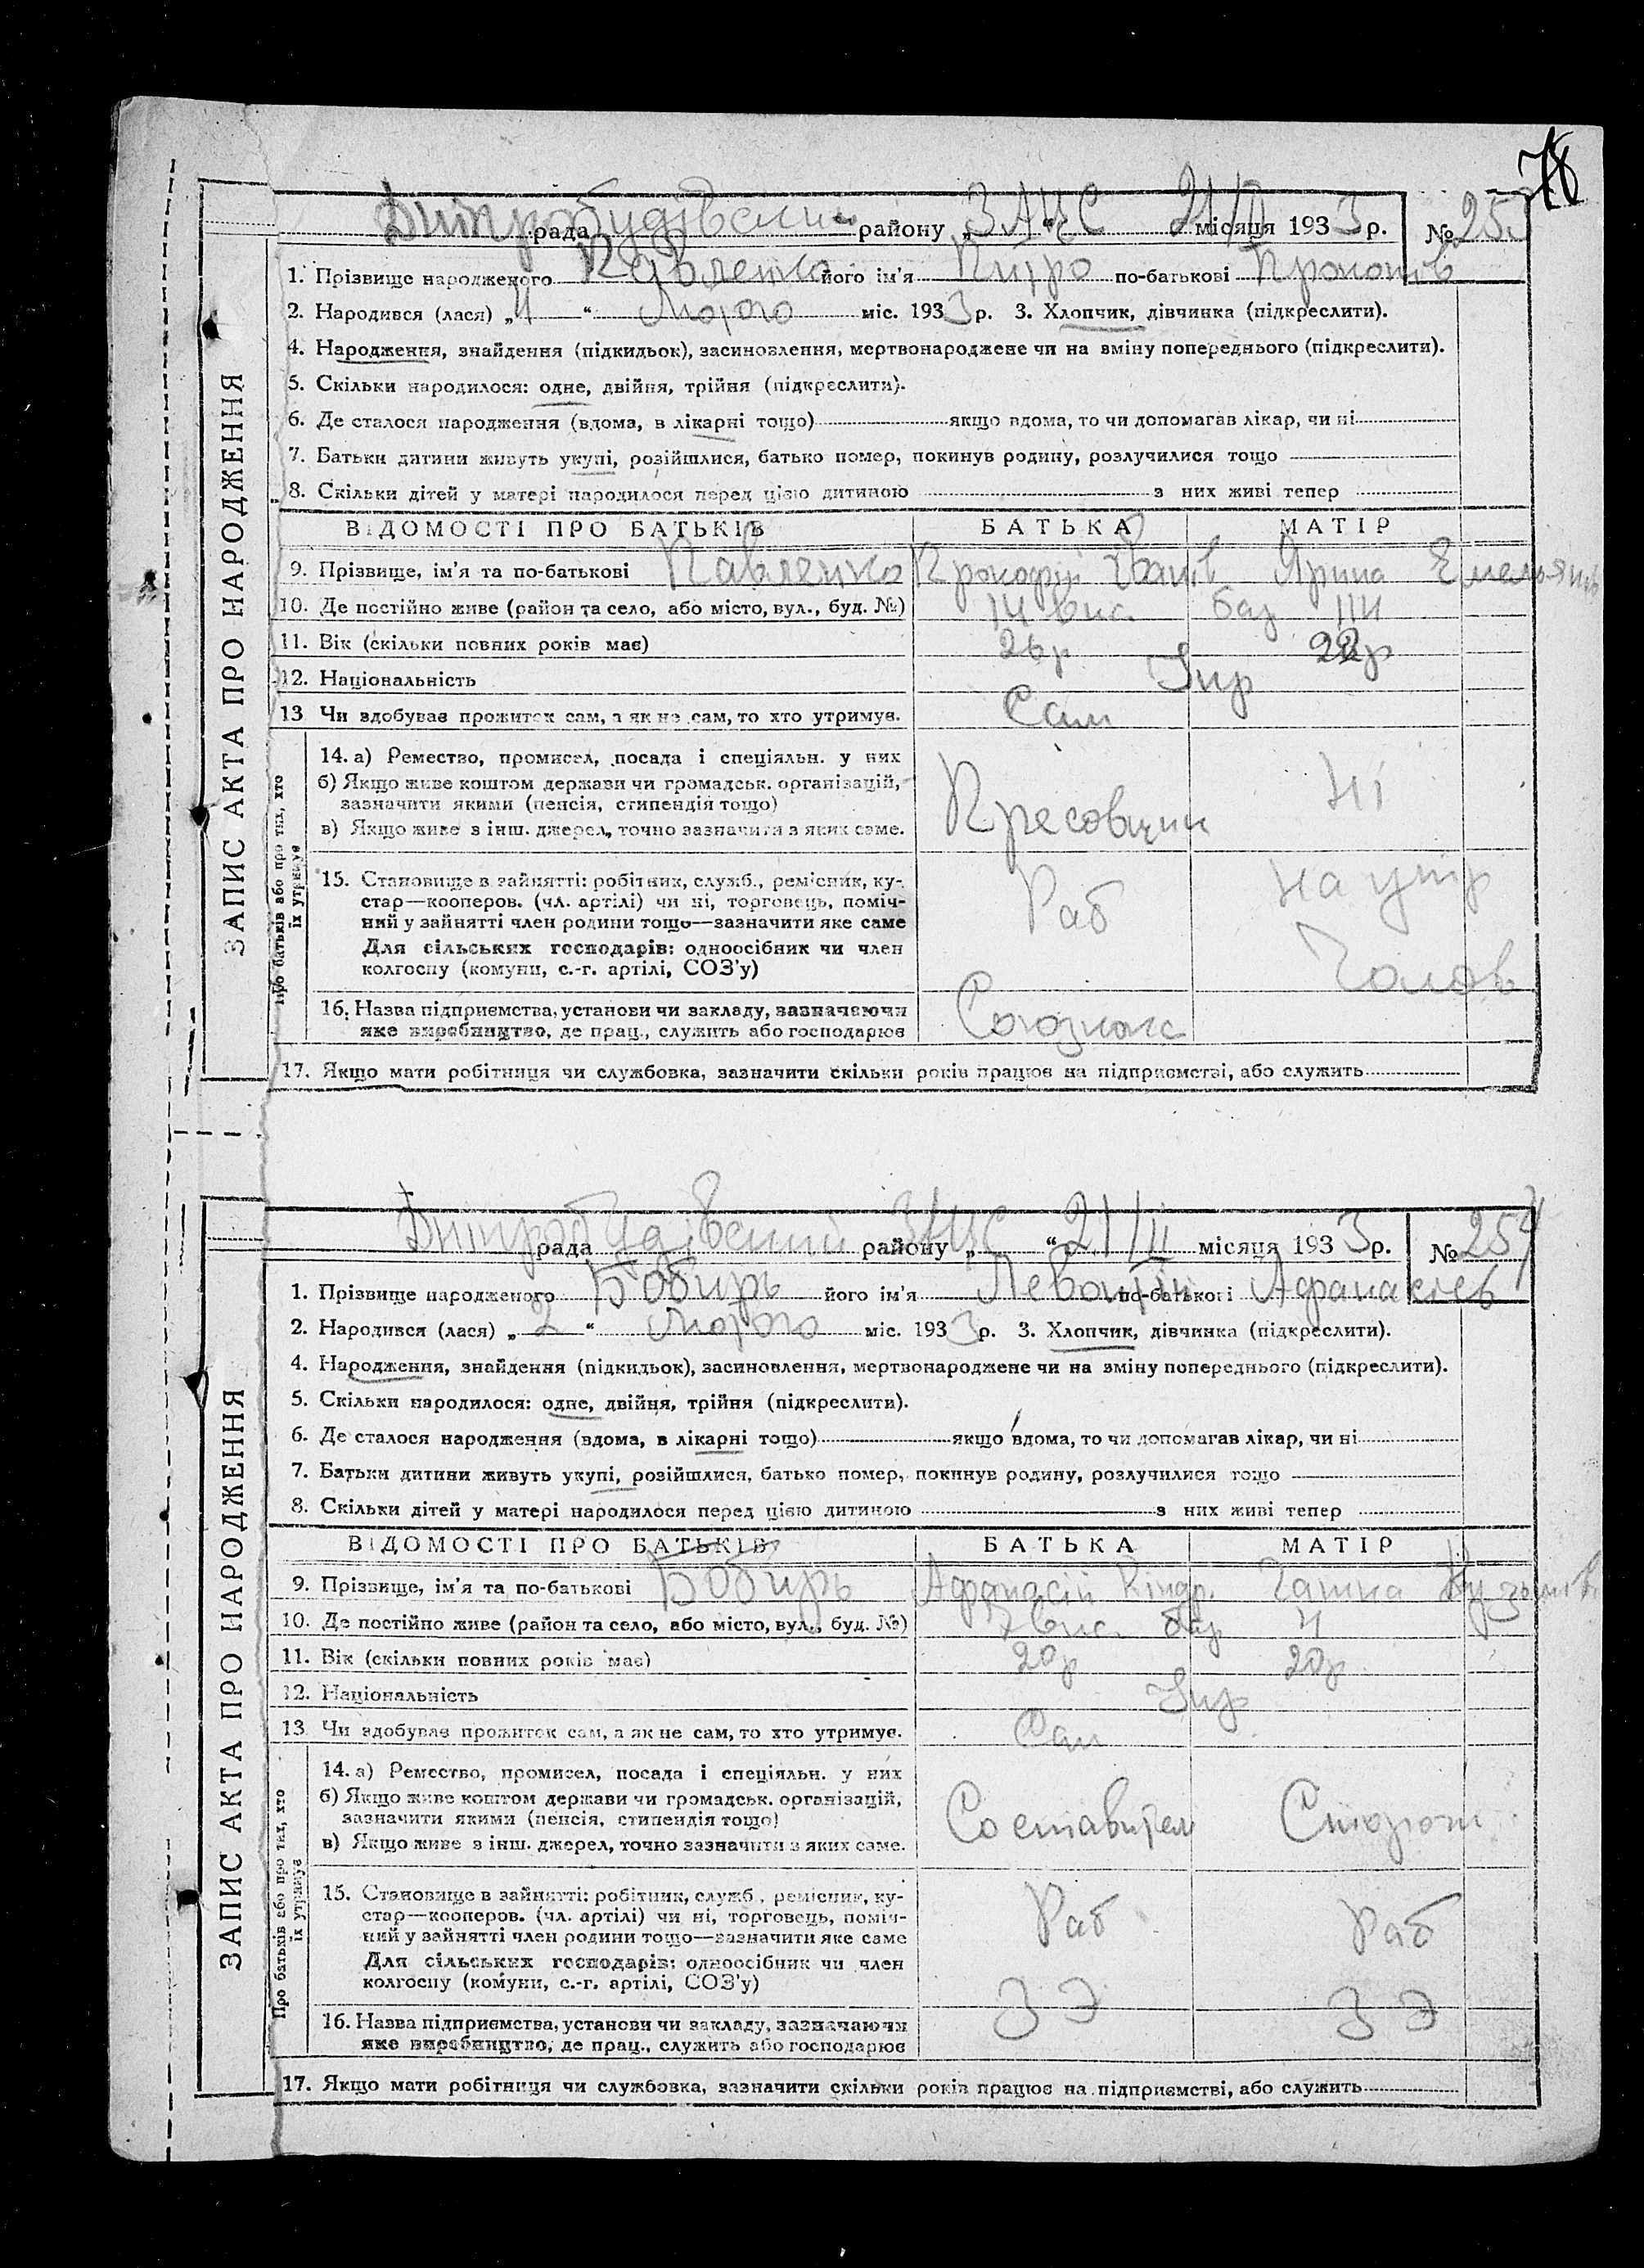 78
Дніпробудівський рада району „ЗАЦС“ 21/II місяця 1933 р. № 253
1. Прізвище народженого Павленко його ім'я Питро по-батькові Прокопів
2. Народився (лася) „ “ Лютого міс. 1933 р. 3. Хлопчик, дівчинка (підкреслити).
4. Народження, знайдення (підкидьок), засиновлення, мертвонароджене чи на зміну попереднього (підкреслити).
5. Скільки народилося: одне, двійня, трійня (підкреслити).
6. Де сталося народження (вдома, в лікарні тощо) якщо вдома, то чи допомагав лікар, чи ні
7. Батьки дитини живуть укупі, розійшлися, батько помер, покинув родину, розлучилися тощо
8. Скільки дітей у матері народилося перед цією дитиною з них живі тепер
ВІДОМОСТІ ПРО БАТЬКІВ БАТЬКА МАТІР
9. Прізвище, ім'я та по-батькові Павленко Прокофій Іванів Ярина Емельянів
10. Де постійно живе (район та село, або місто, вул., буд. №) 14 вис. бар 114
11. Вік (скільки повних років має) 26 р 22 р
12. Національність Укр
13. Чи здобуває прожиток сам, а як не сам, то хто утримує. Сам
ЗАПИС АКТА ПРО НАРОДЖЕННЯ
Про батьків або про тих, хто
їх утримує
14. а) Ремество, промисел, посада і спеціяльн. у них
б) Якщо живе коштом держави чи громадськ. організацій,
зазначити якими (пенсія, стипендія тощо)
в) Якщо живе з інш. джерел, точно зазначити з яких саме.
Пресовщик Ні
15. Становище в зайнятті: робітник, служб., ремісник, ку-
стар—кооперов. (чл. артілі) чи ні, торговець, поміч-
ний у зайнятті член родини тощо—зазначити яке саме
Для сільських господарів: одноосібник чи член
колгоспу (комуни, с.-г. артілі, СОЗ'у)
Раб На утр
Чолов
16. Назва підприємства, установи чи закладу, зазначаючи
яке виробництво, де прац., служить або господарює
17. Якщо мати робітниця чи службовка, зазначити скільки років працює на підприємстві, або служить
Дніпробудівський рада ЗАЦС району „ “ 21/II місяця 1933 р. № 254
1. Прізвище народженого Бобирь його ім'я Левонтій по-батькові Афанасієв
2. Народився (лася) „2“ Лютого міс. 1933 р. 3. Хлопчик, дівчинка (підкреслити).
4. Народження, знайдення (підкидьок), засиновлення, мертвонароджене чи на зміну попереднього (підкреслити).
5. Скільки народилося: одне, двійня, трійня (підкреслити).
6. Де сталося народження (вдома, в лікарні тощо) якщо вдома, то чи допомагав лікар, чи ні
7. Батьки дитини живуть укупі, розійшлися, батько помер, покинув родину, розлучилися тощо
8. Скільки дітей у матері народилося перед цією дитиною з них живі тепер
ВІДОМОСТІ ПРО БАТЬКІВ БАТЬКА МАТІР
9. Прізвище, ім'я та по-батькові Бобирь Афанасій Кіндр. Ганна Кузьмів
10. Де постійно живе (район та село, або місто, вул., буд. №) 7 вис. бар 4
11. Вік (скільки повних років має) 20 р 20 р
12. Національність Укр
13. Чи здобуває прожиток сам, а як не сам, то хто утримує. Сам
ЗАПИС АКТА ПРО НАРОДЖЕННЯ
Про батьків або про тих, хто
їх утримує
14. а) Ремество, промисел, посада і спеціяльн. у них
б) Якщо живе коштом держави чи громадськ. організацій,
зазначити якими (пенсія, стипендія тощо)
в) Якщо живе з інш. джерел, точно зазначити з яких саме.
Составител Сторож
15. Становище в зайнятті: робітник, служб., ремісник, ку-
стар—кооперов. (чл. артілі) чи ні, торговець, поміч-
ний у зайнятті член родини тощо—зазначити яке саме
Для сільських господарів: одноосібник чи член
колгоспу (комуни, с.-г. артілі, СОЗ'у)
Раб Раб
16. Назва підприємства, установи чи закладу, зазначаючи
яке виробництво, де прац., служить або господарює
З Э З Э
17. Якщо мати робітниця чи службовка, зазначити скільки років працює на підприємстві, або служить